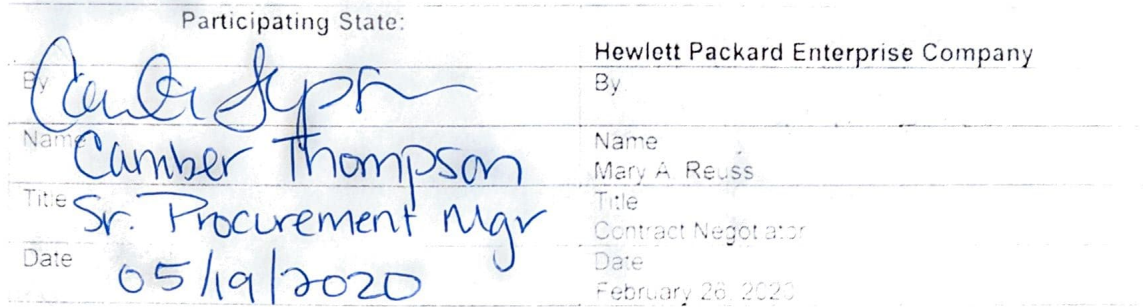 Participating State:
By
Name
Camber Thompson
Title
Sr. Procurement Mgr
Date
05/19/2020
Hewlett Packard Enterprise Company
By
Name
Mary A. Reuss
Title
Contract Negotiator
Date
February 26, 2020